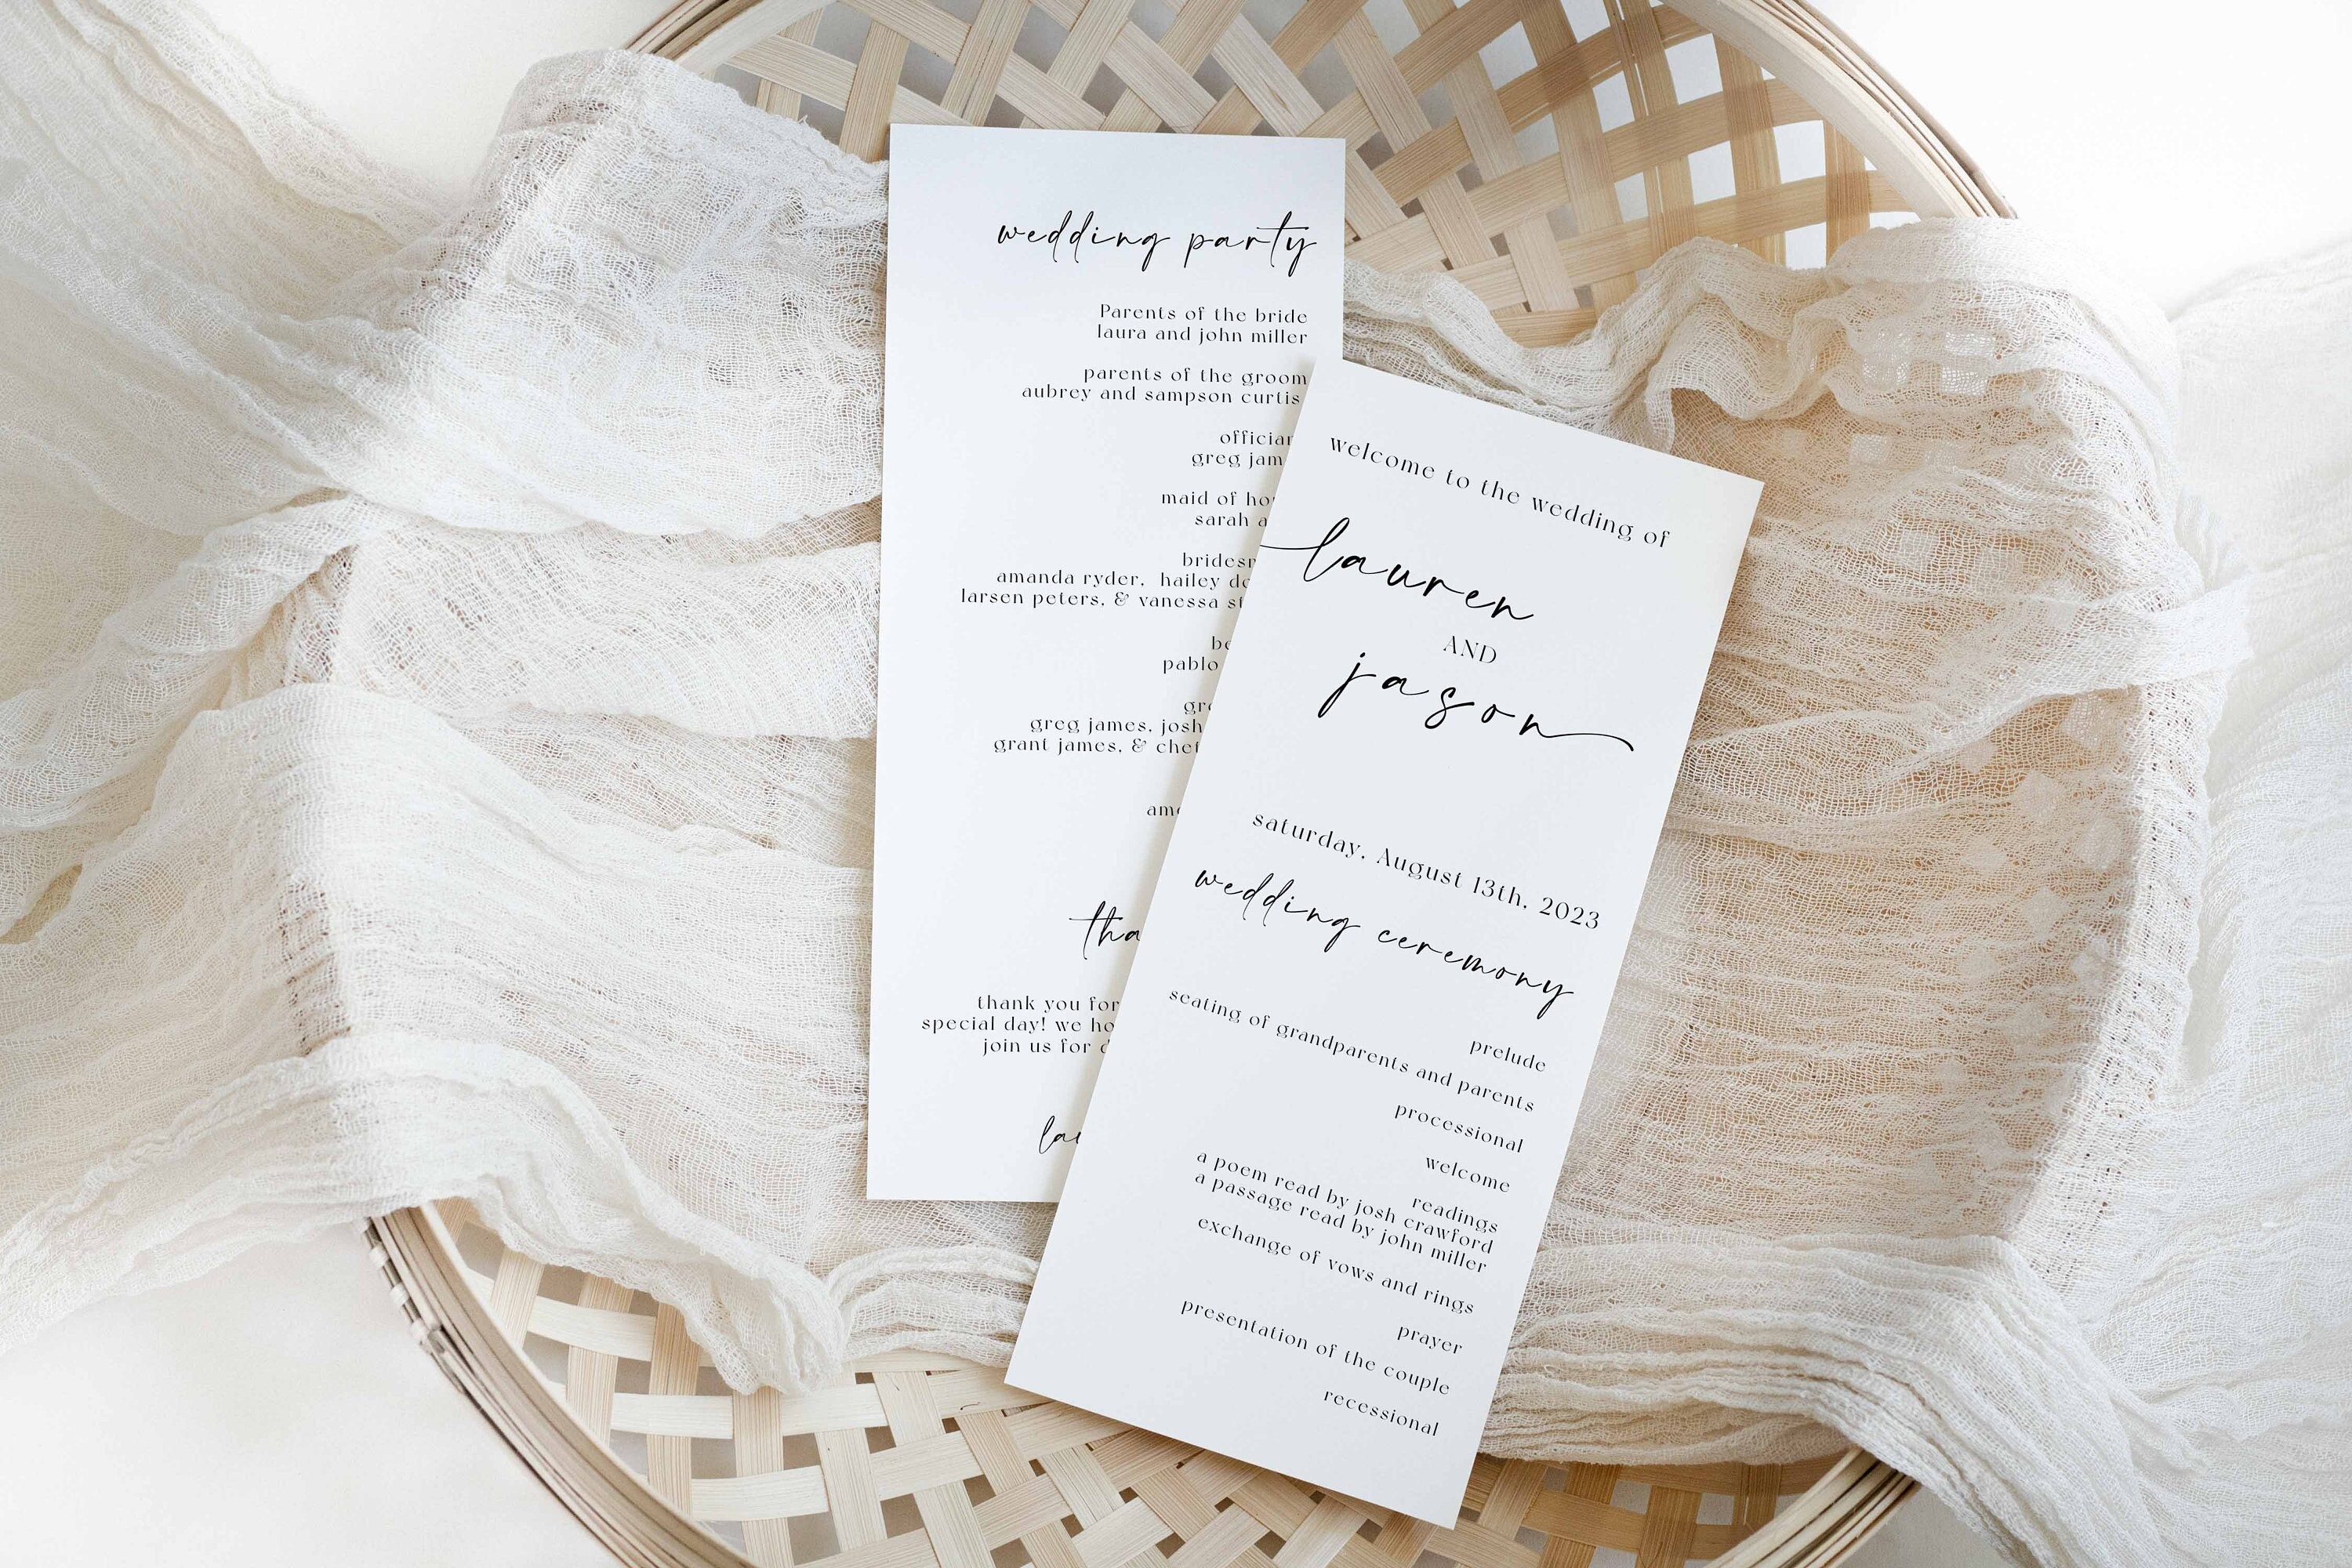 wedding party
Parents of the bride
laura and john miller
parents of the groom
aubrey and sampson curtis
greg
maid of
sarah
amanda ryder, hailey
larsen peters, & vanessa
pablo
greg james, josh
grant james, &
thank you for
special day! we
join us for
welcome to the wedding of
lauren
AND
jason
saturday, August 13th, 2023
wedding ceremony
prelude
seating of grandparents and parents
processional
welcome
readings
a poem read by josh crawford
a passage read by john miller
exchange of vows and rings
prayer
presentation of the couple
recessional